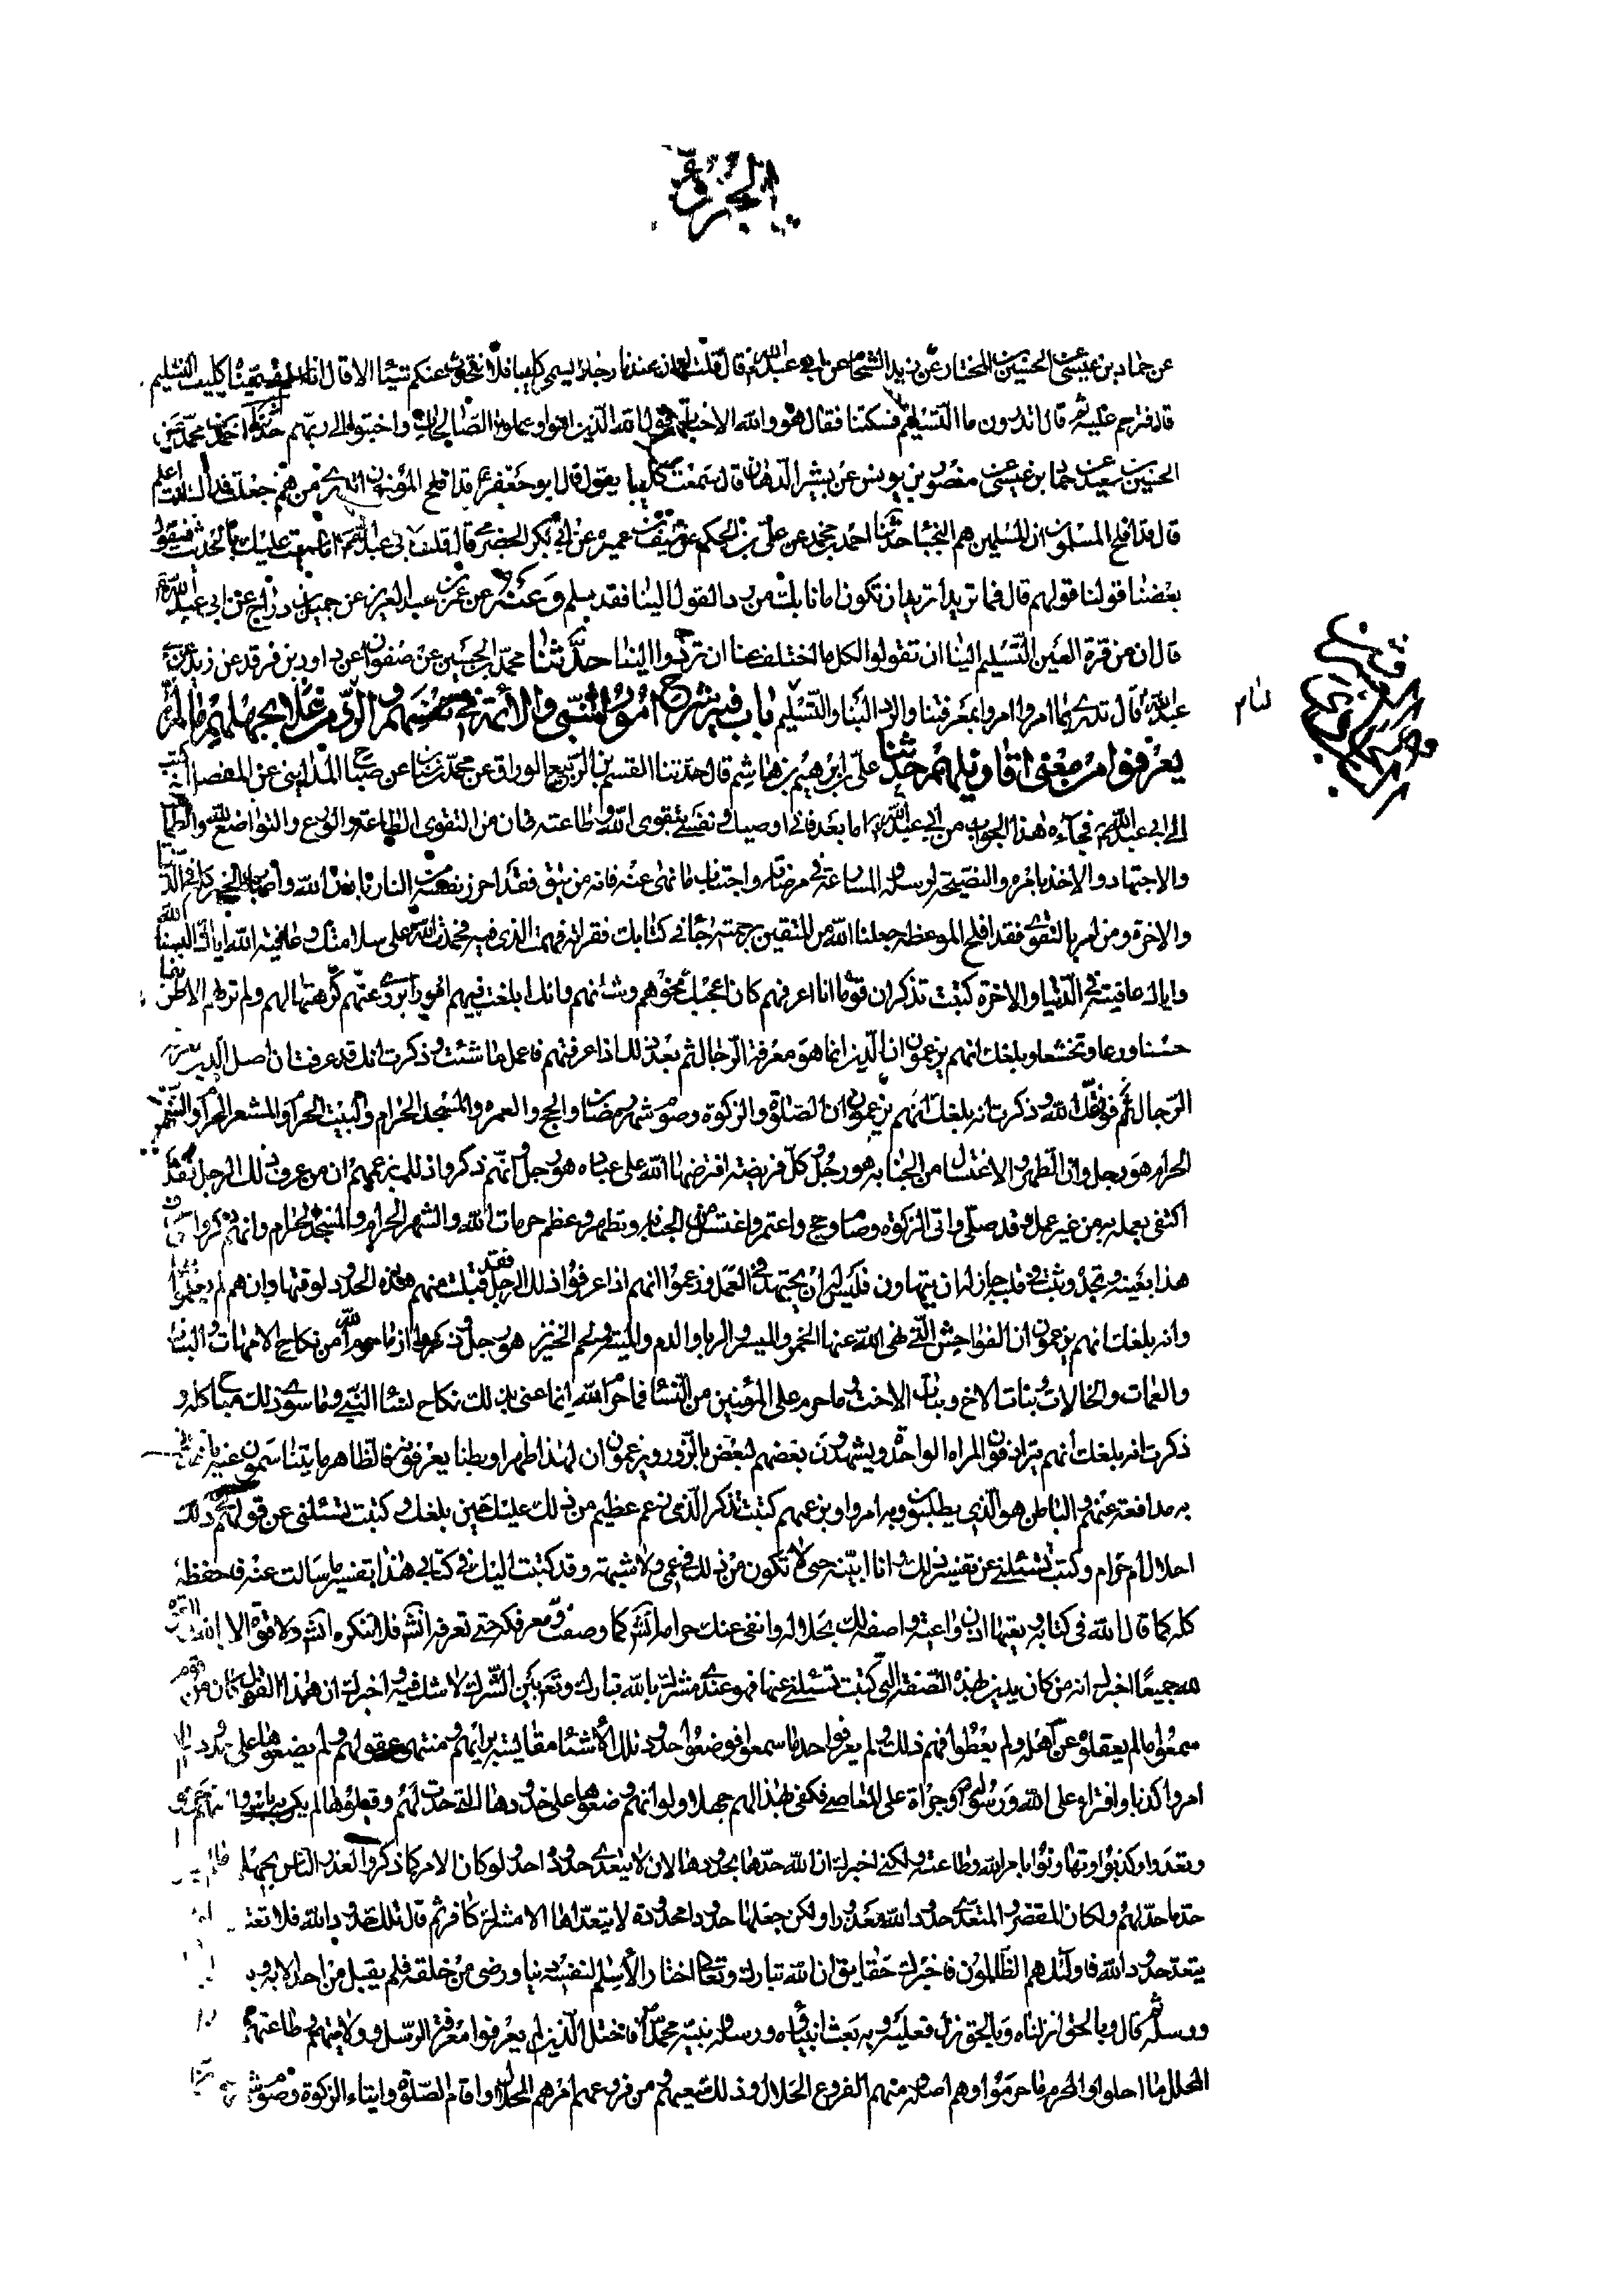 الجزء
عن حماد بن عيسى عن الحسين بن المختار عن زيد الشحام عن ابي عبد الله ع قال قلت له ان عندنا رجلا يسمى كليبا فلا نتحدث عنكم شيئا الا قال انا اسلم فسميناه كليب التسليم
قال فترحم عليه ثم قال اتدرون ما التسليم فسكتنا فقال هو والله الاخبات قول الله الذين امنوا وعملوا الصالحات واخبتوا الى ربهم حدثنا احمد بن محمد عن
الحسين بن سعيد عن حماد بن عيسى عن منصور بن يونس عن بشير الدهان قال سمعت كليبا يقول قال ابو جعفر ع قد افلح المؤمنون اتدرى من هم جعلت فداك انت اعلم
قال قد افلح المسلمون ان المسلمين هم النجبا حدثنا احمد بن محمد عن على بن الحكم عن سيف بن عميره عن ابى بكر الحضرمى قال قلت لابى عبد الله ع بالحديث فيقول
بعضنا قولنا قولهم قال فما تريد اتريد ان تكون اماما من رد القول الينا فقد سلم وعنه عن عمر بن عبد العزيز عن جميل بن دراج عن ابى عبد الله ع
قال ان من قرة العين التسليم الينا ان تقولوا لكل ما اختلف عنا ان تردوا الينا حدثنا محمد بن الحسين عن صفوان عن داود بن فرقد عن زيد عن ابى
عبد الله ع قال تدرى بما امروا امروا بمعرفتنا والرد الينا والتسليم لنا باب فيه شرح امور النبى والائمة فى نفسهم والرد على من غلا بجهلهم ما لم
لنا م
يعرفوا من معنى اقاويلهم حدثنا على بن ابرهيم بن هاشم قال حدثنا القسم بن الربيع الوراق عن محمد بن سنان عن صباح المداينى عن المفضل انه كتب
الى ابى عبد الله ع فجاءه هذا الجواب من ابى عبد الله ع اما بعد فانى اوصيك ونفسى بتقوى الله وطاعته فان من التقوى الطاعة والورع والتواضع لله والطمأنينة
والاجتهاد والاخذ بامره والنصيحة لرسله والمسارعة فى مرضاته واجتناب ما نهى عنه فانه من يتق فقد احرز نفسه من النار باذن الله واصاب الخير كله فى الدنيا
والاخرة ومن امر بالتقوى فقد افلح الموعظة جعلنا الله من المتقين برحمته جائنى كتابك فقراته وفهمت الذى فيه فحمدت الله على سلامتك وعافية الله اياك البسنا الله
واياك عافيته فى الدنيا والاخرة كتبت تذكر ان قوما انا اعرفهم كان اعجبك نحوهم وشانهم وانك ابلغت فيهم امورا تروى عنهم كرهتها لهم ولم تر بهم الا طريقا
حسنا وورعا وتخشعا وبلغك انهم يزعمون ان الدين انما هو معرفة الرجال ثم بعد ذلك اذا عرفتهم فاعمل ما شئت وذكرت انك قد عرفت ان اصل الدين معرفة
الرجال ثم فوفقك الله وذكرت انه بلغك انهم يزعمون ان الصلوة والزكوة وصوم شهر رمضان والحج والعمرة والمسجد الحرام والبيت الحرام والمشعر الحرام والشهر
الحرام هو رجل وان الطهر والاغتسال من الجنابة هو رجل وكل فريضة افترضها الله على عباده هو رجل وانهم ذكروا ذلك بزعمهم ان من عرف ذلك الرجل فقد
اكتفى بعلمه به من غير عمل وقد صلى واتى الزكوة وصام وحج واعتمر واغتسل من الجنابة وتطهر وعظم حرمات الله والشهر الحرام والمسجد الحرام وانهم ذكروا من عرف
هذا بعينه وبحده وثبت فى قلبه جاز له ان يتهاون فليس له ان يجتهد فى العمل وزعموا انهم اذا عرفوا ذلك الرجل فقد قبلت منهم هذه الحدود لوقتها وان هم لم يعملوا
وانه بلغك انهم يزعمون ان الفواحش التى نهى الله عنها الخمر والميسر والربا والدم والميتة ولحم الخنزير هو رجل وذكروا ان ما حرم الله من نكاح الامهات والبنات
والعمات والخالات وبنات الاخ وبنات الاخت وما حرم على المؤمنين من النساء فما حرم الله انما عنى بذلك نكاح نساء النبى وما سوى ذلك مباح كله و
ذكرت انه بلغك انهم يترادفون المراة الواحدة ويشهدون بعضهم لبعض بالزور ويزعمون ان لهذا ظهرا وبطنا يعرفونه فالظاهر ما يتناسمون عنه ياخذون
به مدافعة عنهم والباطن هو الذى يطلبون وبه امروا بزعمهم كتبت تذكر الذى زعم عظيم من ذلك عليك حين بلغك وكتبت تسئلنى عن قولهم فى ذلك
احلال ام حرام وكتبت تسئلنى عن تفسير ذلك وانا ابينه حتى لا تكون من ذلك فى عمى ولا شبهة وقد كتبت اليك فى كتابى هذا تفسير ما سالت عنه فاحفظه
كله كما قال الله فى كتابه وتعيها اذن واعية واصفه لك بحلاله وانفى عنك حرامه انشاء الله كما وصفت ومعرفكه حتى تعرفه انشاء الله فلا تنكره انشاء الله ولا قوة الا بالله القوة
لله جميعا اخبرك انه من كان يدين بهذه الصفة التى كتبت تسئلنى عنها فهو عندى مشرك بالله تبارك وتعالى بين الشرك لا شك فيه واخبرك ان هذا القول كان من قوم
سمعوا ما لم يعقلوه عن اهله ولم يعطوا فهم ذلك ولم يعرفوا حد ما سمعوا فوضعوا حدود تلك الاشياء مقايسة برايهم ومنتهى عقولهم ولم يضعوها على حدود ما
امروا كذبا وافتراء على الله ورسوله وجراة على المعاصى فكفى بهذا لهم جهلا ولو انهم وضعوها على حدودها التى حدت لهم وقبلوها لم يكن به باس ولكنهم حرفوها
وتعدوا وكذبوا وتهاونوا بامر الله وطاعته ولكنى اخبرك ان الله حدها بحدودها لان لا يتعدى حدوده احد ولو كان الامر كما ذكروا لعذر الناس بجهلهم
حد ما حد لهم ولكان المقصر والمتعدى حدود الله معذورا ولكن جعلها حدودا محدودة لا يتعداها الا مشرك كافر ثم قال تلك حدود الله فلا تعتدوها
يتعد حدود الله فاولئك هم الظالمون فاخبرك حقايق ان الله تبارك وتعالى اختار الاسلم لنفسه دينا ورضى من خلقه فلم يقبل من احد الا به وبه
ورسله ثم قال وبالحق انزلناه وبالحق نزل فعليه وبه بعث انبياؤه ورسله ونبيه محمد ص فاختل الذين لم يعرفوا معرفة الرسل وولايتهم وطاعتهم
المحلل ما احلوا والمحرم ما حرموا وهم اصله ومنهم الفروع الحلال وذلك سعيهم ومن فروعهم امرهم الحلال واقام الصلوة وايتاء الزكوة وصوم شهر